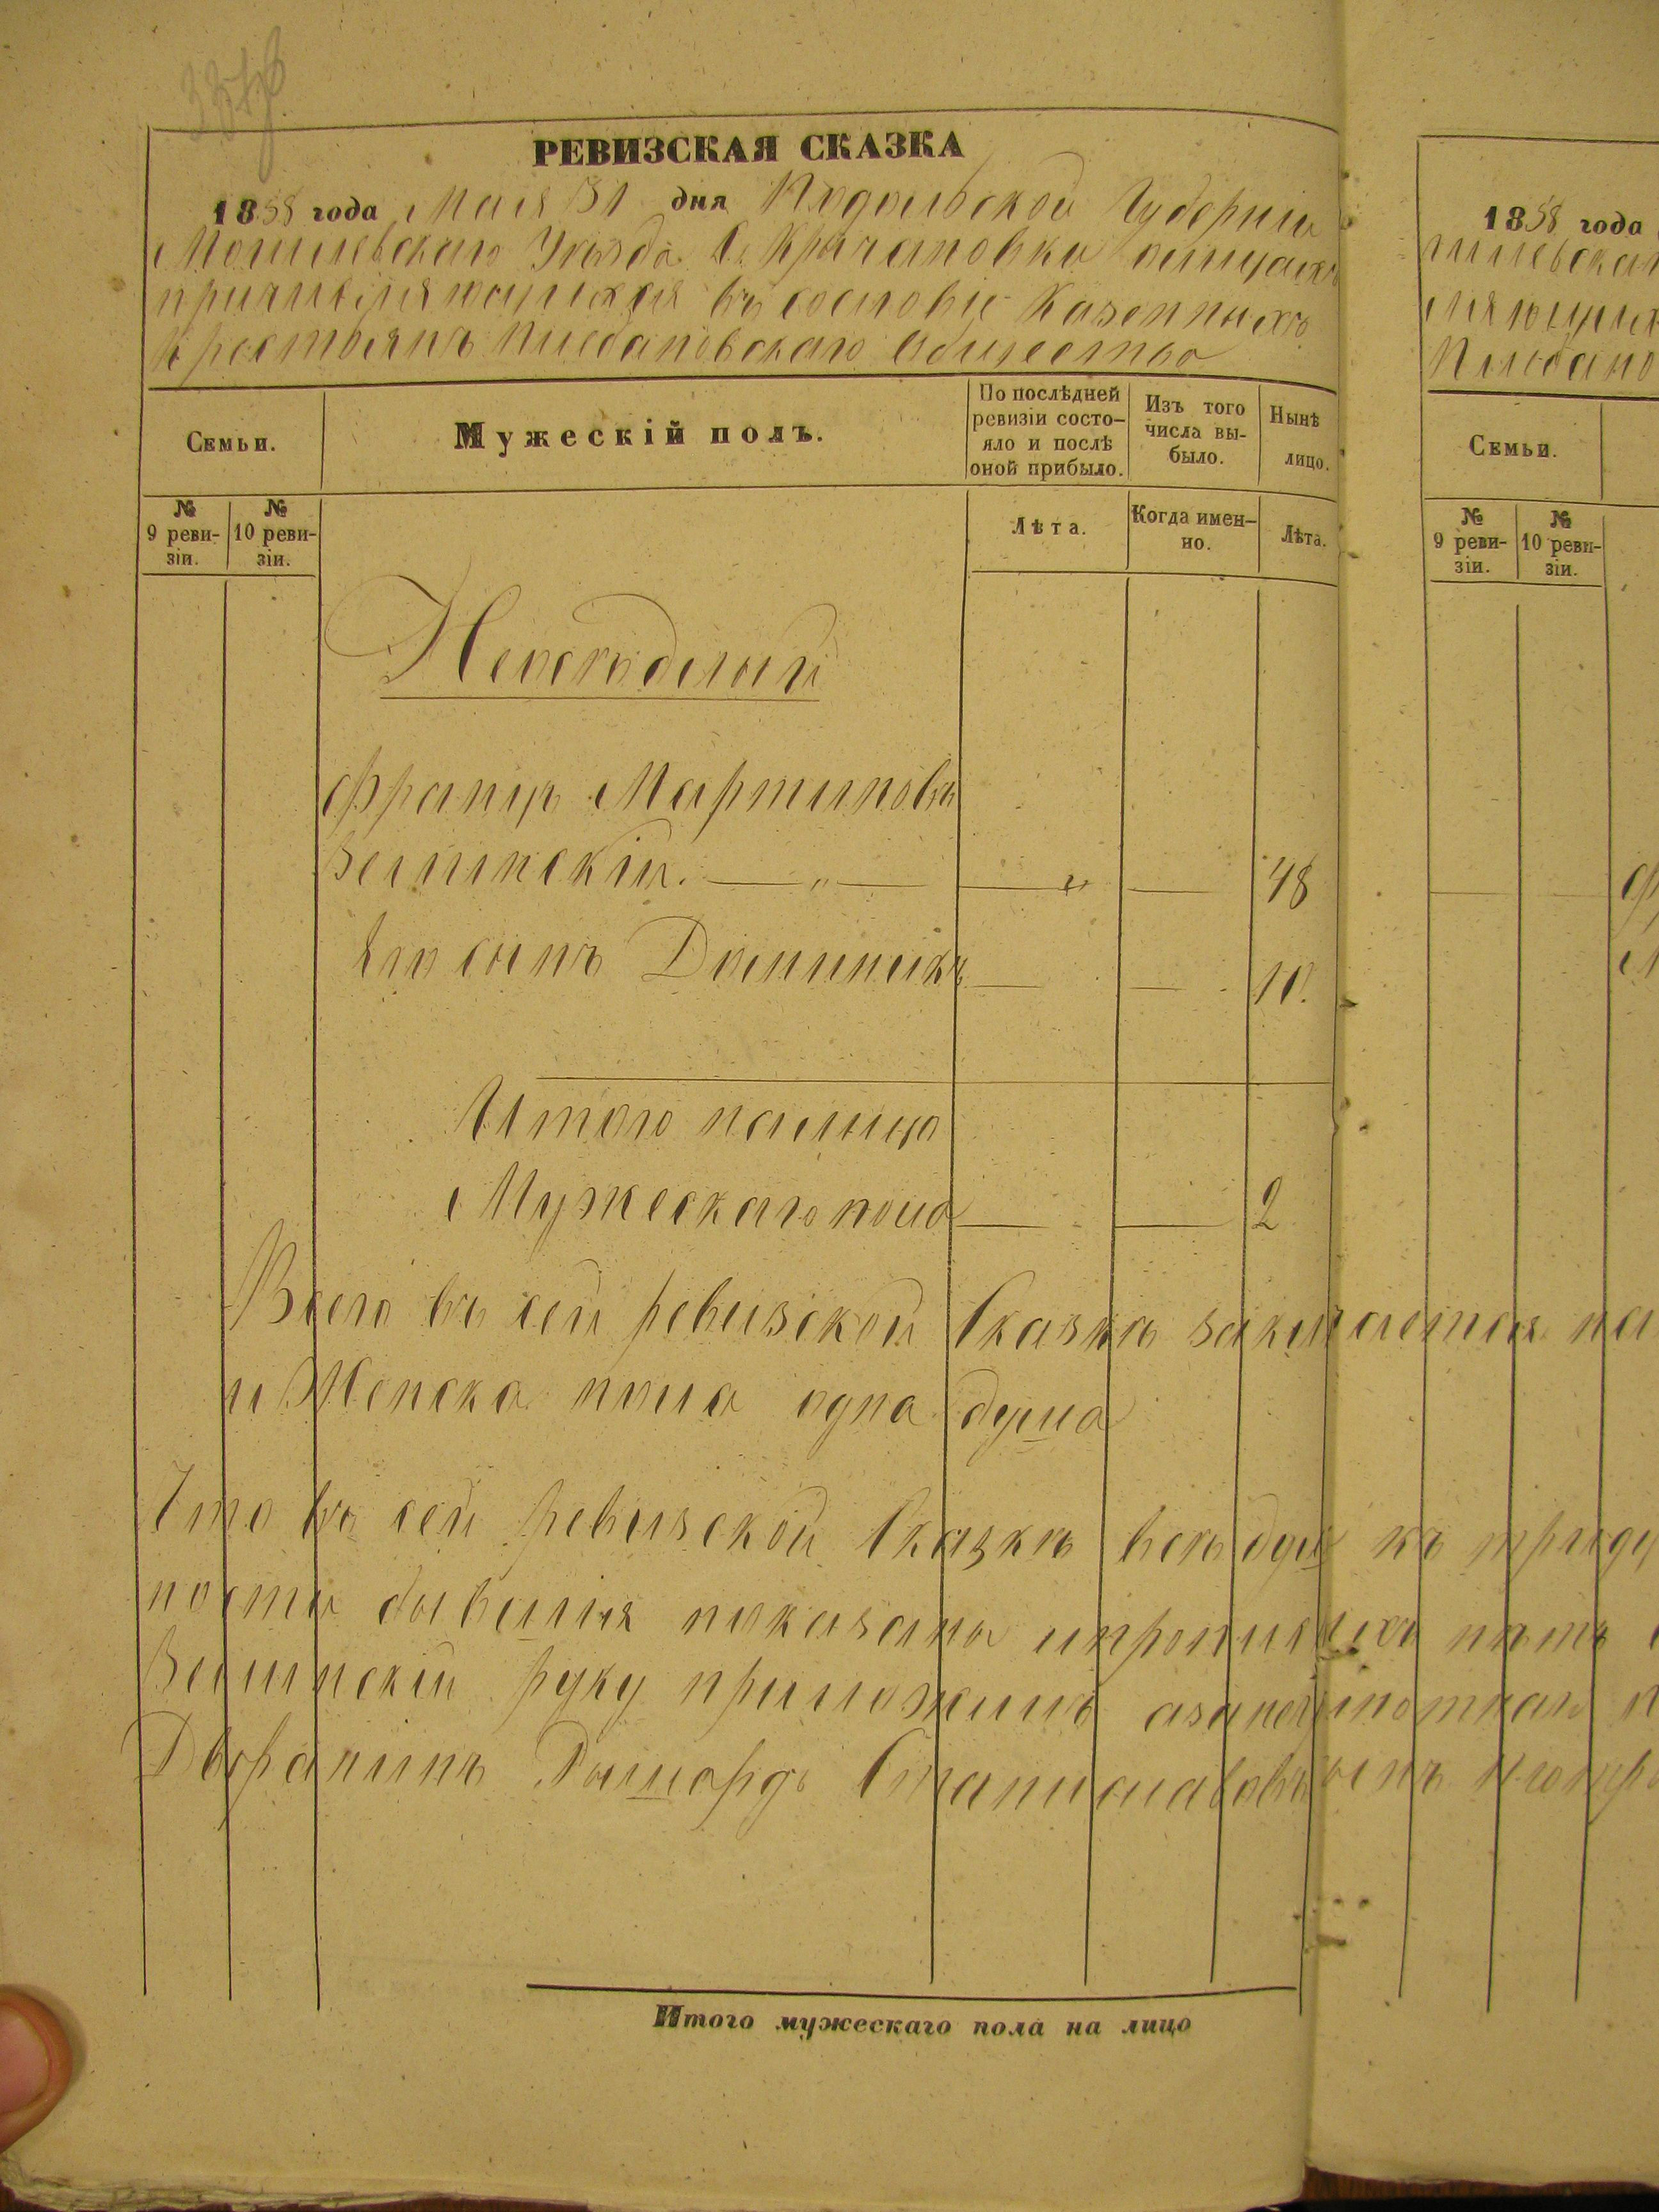 РЕВИЗСКАЯ СКАЗКА
1858 года Мая 31 дня Подольской Губернии
Могилевскаго Уѣзда С. Кричановки о лицахъ
причисляющихся въ сословіе Казенныхъ
Крестьянъ Общества
Семьи.
Мужескій полъ.
По послѣдней ревизіи состо-
яло и послѣ
оной прибыло.
Изъ того
числа вы-
было.
Нынѣ
лицо.
№
9 реви-
зіи.
№
10 реви-
зіи.
Лѣта.
Когда имен-
но.
Лѣта.
Неосѣдлый
Францъ Мартиновъ
Зелинскій. — „ — — „ — 48
Его сынъ Доминикъ — — 10.
Итого налицо
Мужескаго пола — — 2
Всего въ сей ревизской Сказкѣ заключается на
и Женска пола одна душа
Что въ сей ревизской Сказкѣ всѣ души къ
ности бывшія показаны и прописныхъ нѣтъ
Зелинскій руку приложилъ а за неграмотнаго
Дворянинъ Рышардъ Станиславовъ сынъ
Итого мужескаго пола на лицо
1858 года
Семьи.
№
9 реви-
зіи.
№
10 реви-
зіи.